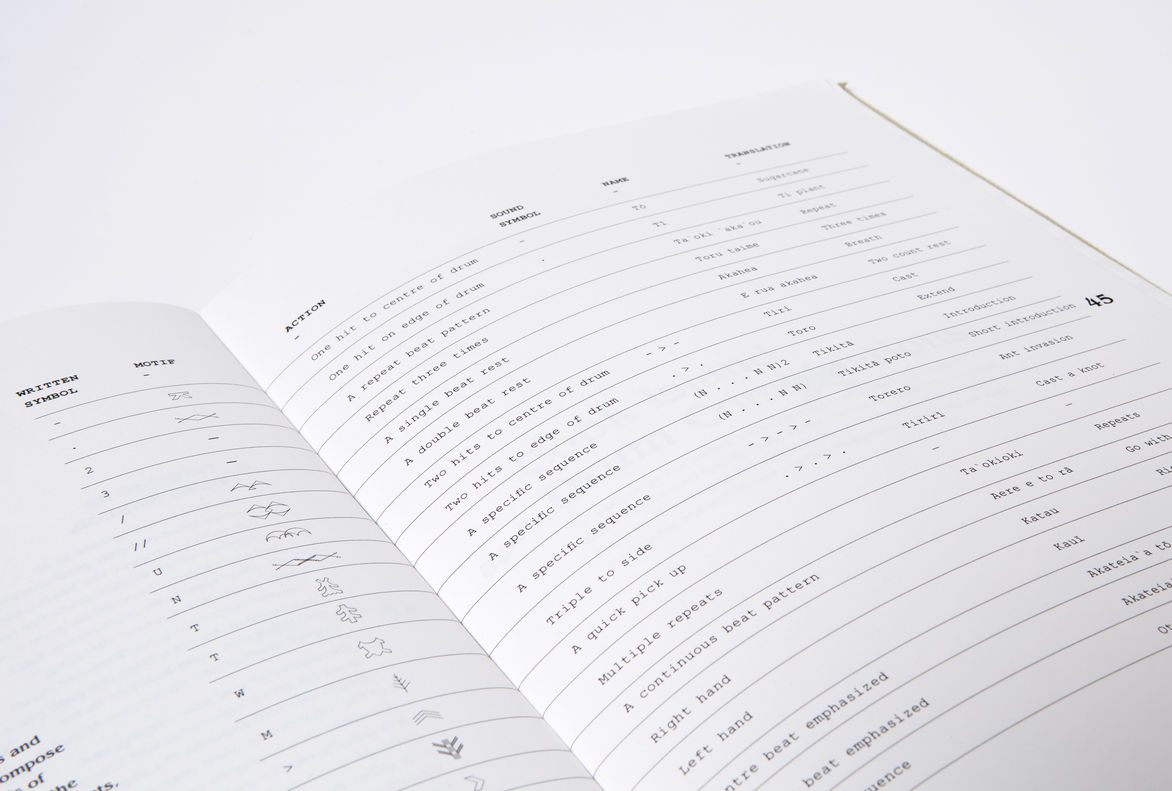 WRITTEN SYMBOL MOTIF
-
.
2
3
/
//
U
N
T
T
W
M
>
s and
ompose
s of
the
ts,
ACTION SOUND SYMBOL NAME TRANSLATION
One hit to centre of drum - Tō Sugarcane
One hit on edge of drum . Tī Ti plant
A repeat beat pattern Ta ʻoki ʻakaʻou Repeat
Repeat three times Toru taime Three times
A single beat rest Akahea Breath
A double beat rest E rua akahea Two count rest
Two hits to centre of drum - > - Tiri Cast
Two hits to edge of drum . > . Toro Extend
A specific sequence (N . . . N N)2 Tikitā Introduction
A specific sequence (N . . . N N) Tikitā poto Short introduction
A specific sequence - > - > - Torero Ant invasion
Triple to side . > . > . Tiriri Cast a knot
A quick pick up – –
Multiple repeats Taʻokioki Repeats
A continuous beat pattern Aere e to rā Go with
Right hand Katau Ri
Left hand Kauī
ntre beat emphasized Akateiaʻa tō
beat emphasized Akateia
uence Ot
45